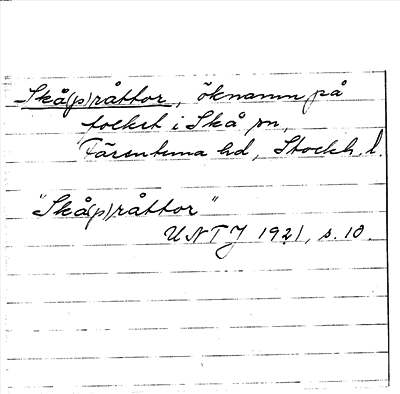 Skå(p)råttor, öknamn på
folket i Skå sn,
Färentuna hd, Stockh. l.
"Skå(p)råttor"
UNTJ 1921, s. 10.